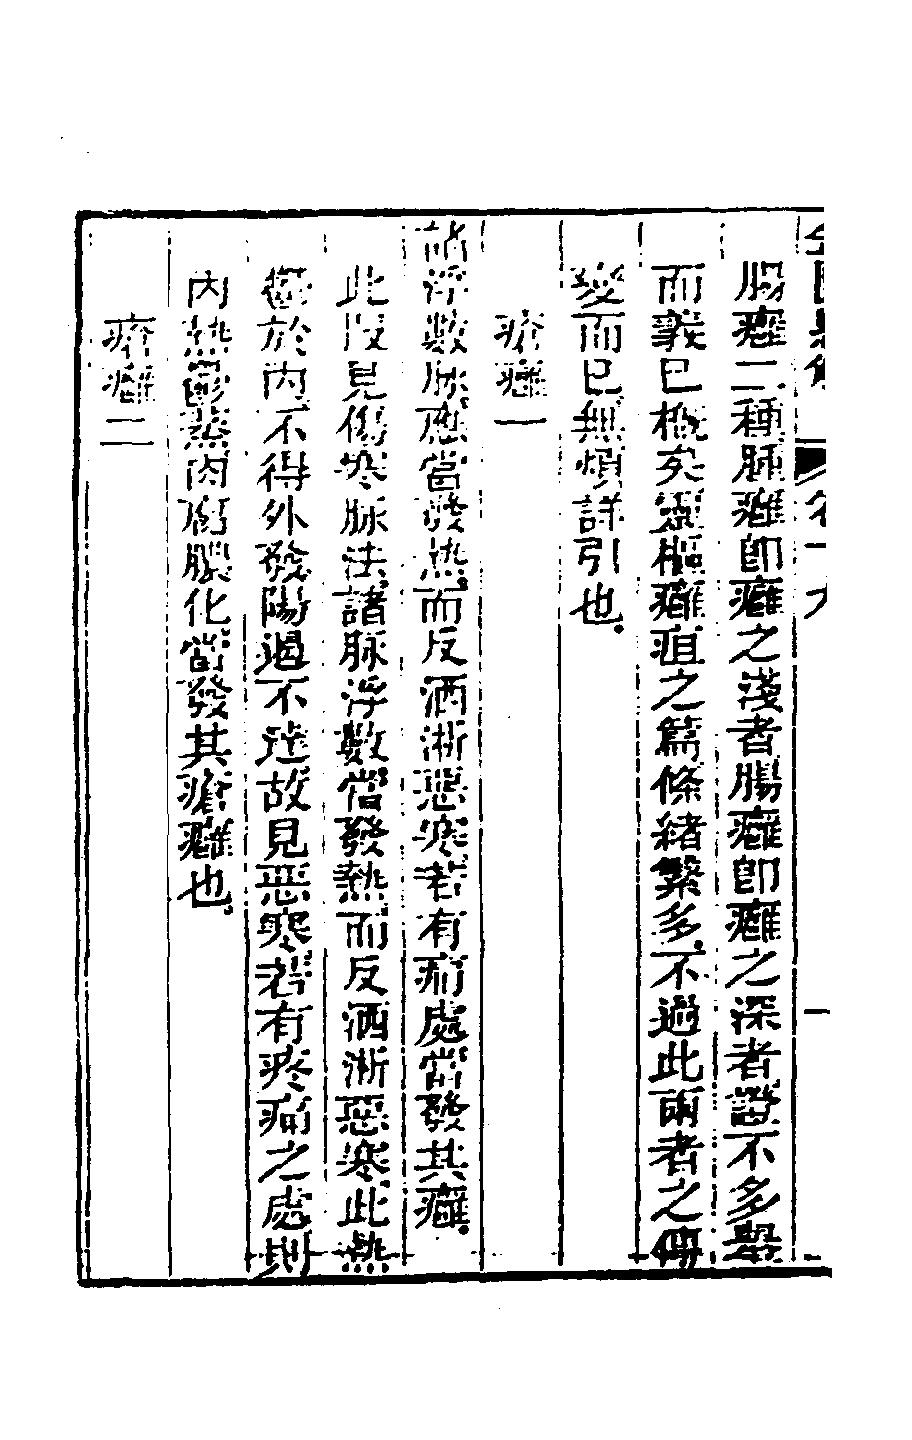 腸癰二種肺癰即癰之淺者腸癰即癰之深者證不多舉
而義已概矣靈樞癰疽之篇條緒繁多不過此兩者之傳
變而已無煩詳引也
瘡癰一
諸浮數脉應當發熱而反洒淅惡寒若有痛處當發其癰
此段見傷寒脉法諸脉浮數當發熱而反洒淅惡寒此熱
鬱於內不得外發陽遏不達故見惡寒若有疼痛之處則
內熱鬱蒸肉腐膿化當發其瘡癰也
瘡癰二